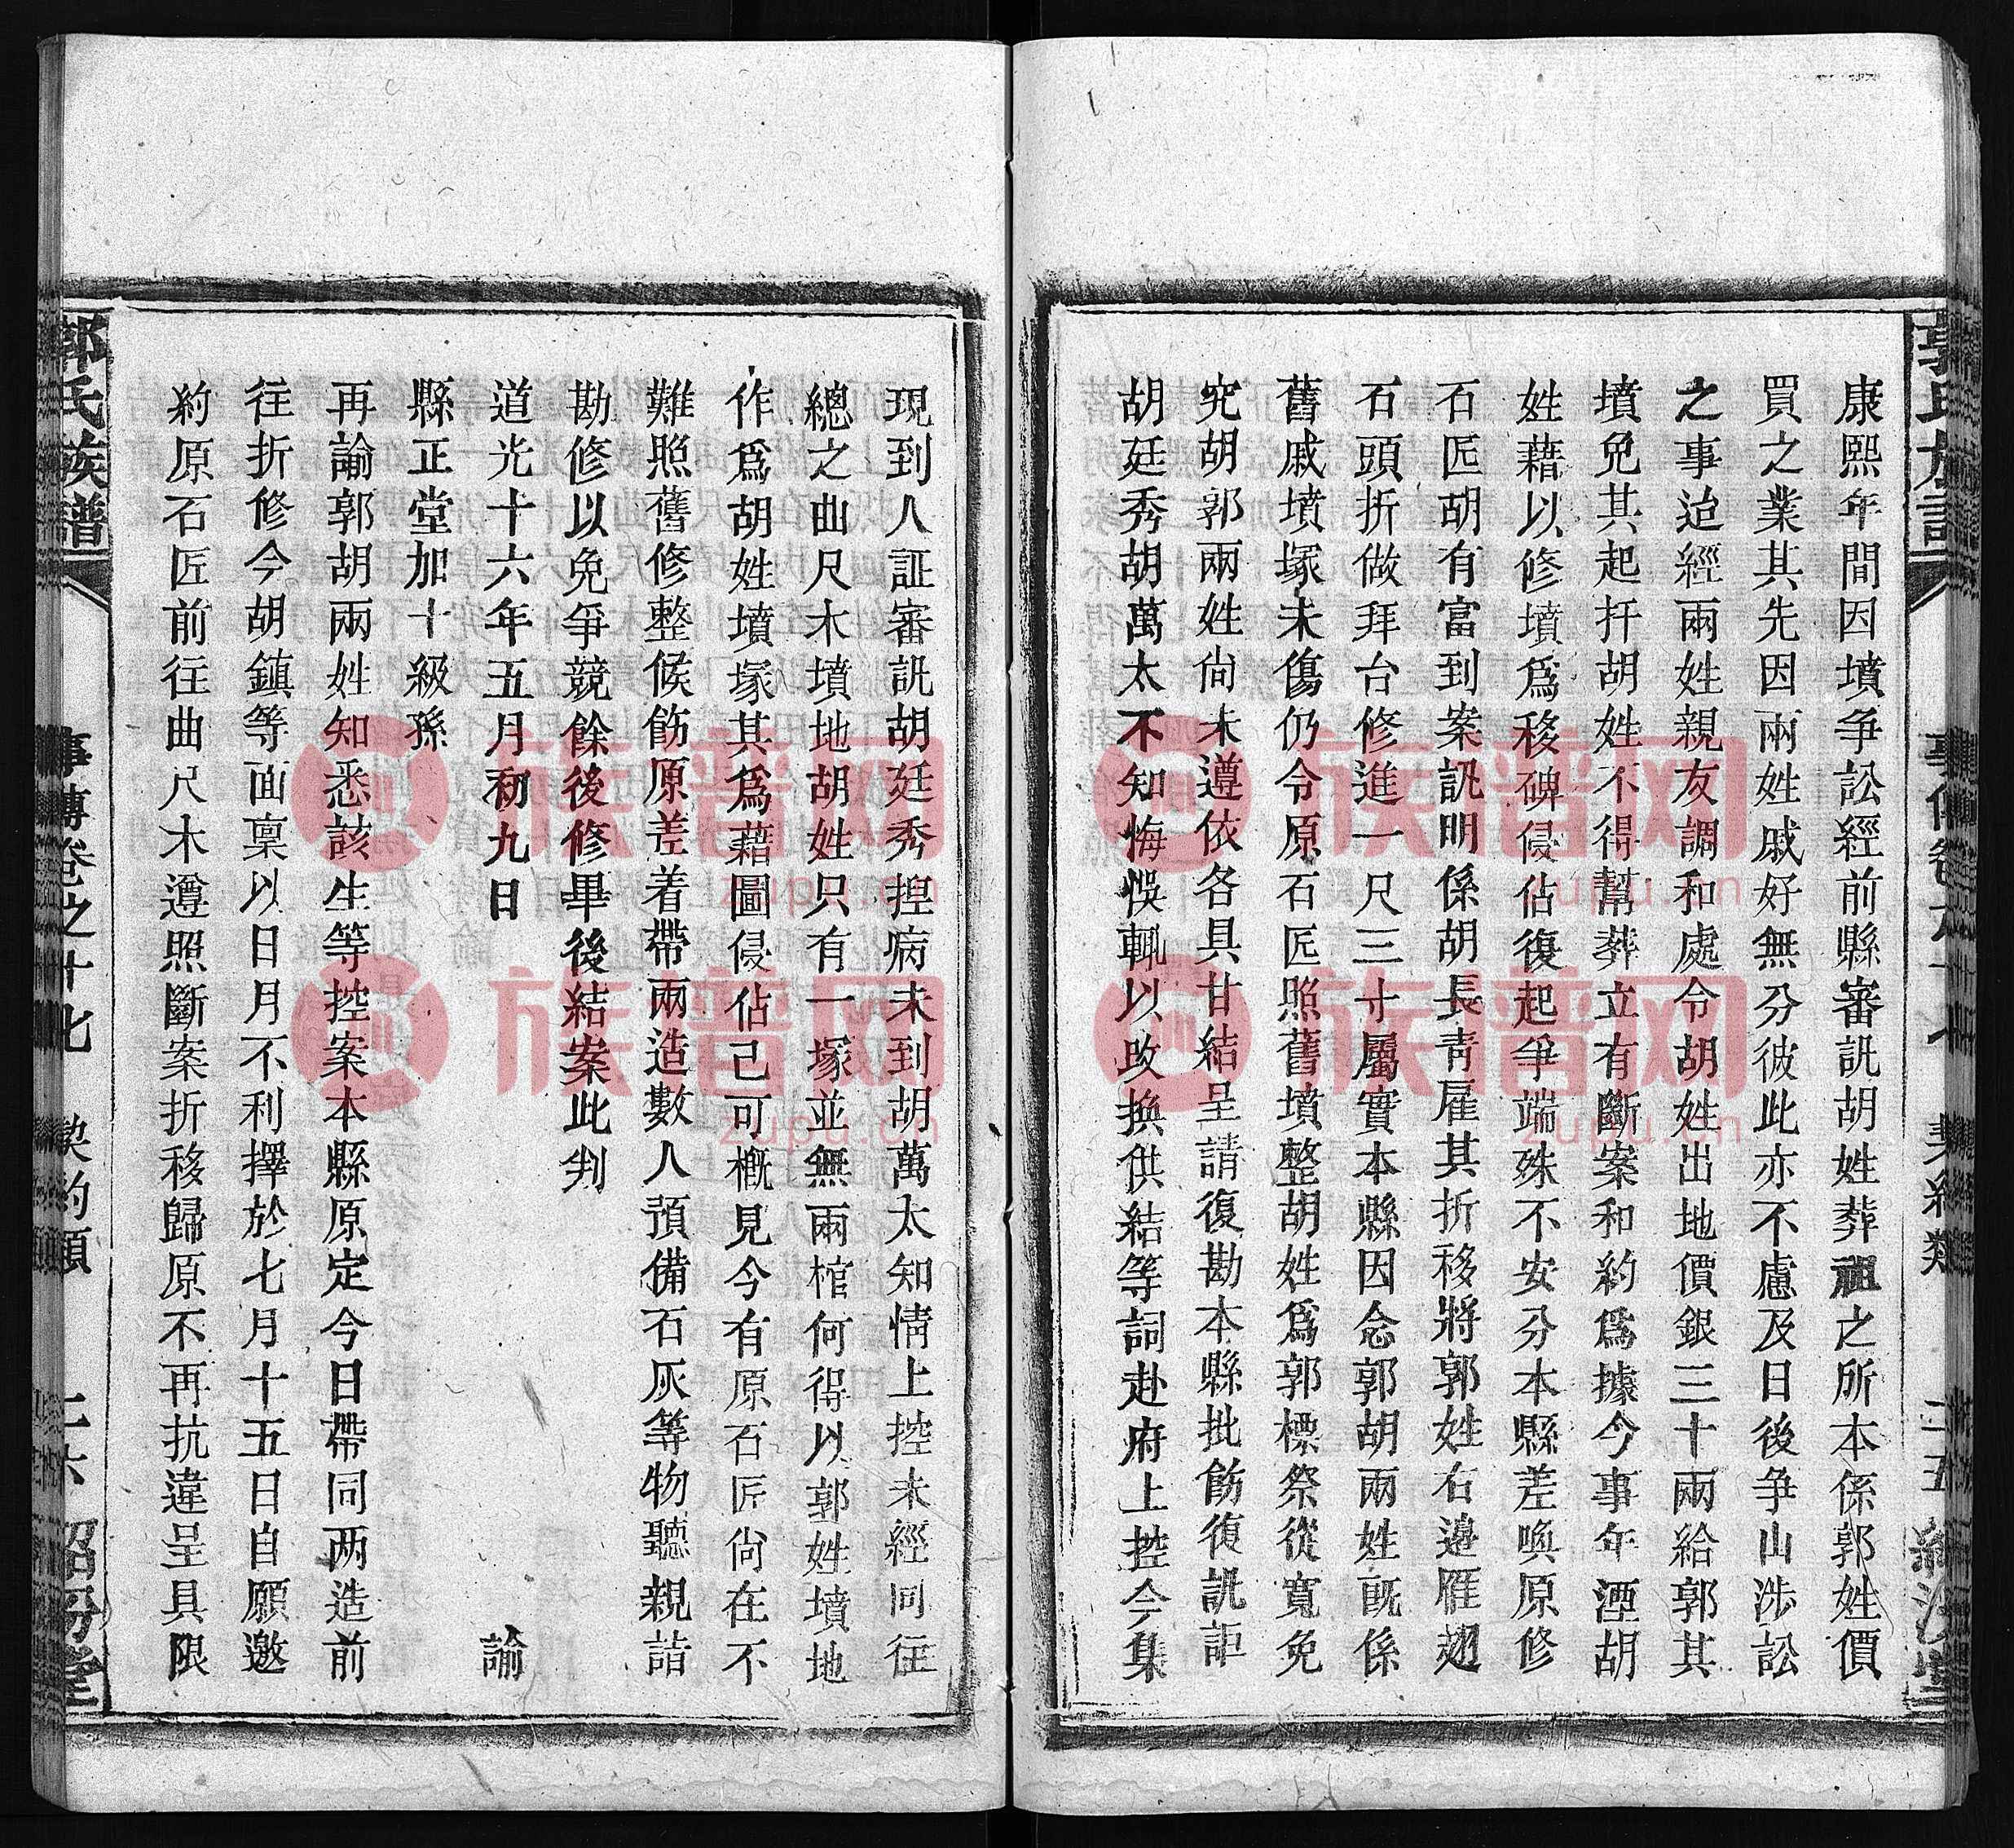 康熙年間因墳爭訟經前縣審訊胡姓葬祖之所本係郭姓價
買之業其先因兩姓戚好無分彼此亦不慮及日後爭山涉訟
之事迨經兩姓親友調和處令胡姓出地價銀三十兩給郭其
墳免其起扦胡姓不得幫葬立有斷案和約爲據今事年湮胡
姓藉以修墳爲移碑侵佔復起爭端殊不安分本縣差喚原修
石匠胡有富到案訊明係胡長靑雇其折移將郭姓右邉雁翅
石頭折做拜台修進一尺三寸屬實本縣因念郭胡兩姓既係
舊戚墳塚未傷仍令原石匠照舊墳整胡姓爲郭標祭從寬免
究胡郭兩姓尙未遵依各具甘結呈請復勘本縣批飭復訊詎
胡廷秀胡萬太不知悔悞輒以改換供結等詞赴府上控今集
現到人証審訊胡廷秀捏病未到胡萬太知情上控未經同往
總之曲尺木墳地胡姓只有一塚並無兩棺何得以郭姓墳地
作爲胡姓墳塚其爲藉圖侵佔己可概見今有原石匠尙在不
難照舊修整候飭原差着帶兩造數人預備石灰等物聽親詣
勘修以免爭競餘後修畢後結案此判
道光十六年五月初九日 諭
縣正堂加十級孫
再諭郭胡兩姓知悉該生等控案本縣原定今日帶同两造前
往折修今胡鎮等面稟以日月不利擇於七月十五日自願邀
約原石匠前往曲尺木遵照斷案折移歸原不再抗違呈具限
郭氏族譜 事傳卷之十七 契約類 二五
郭氏族譜 事傳卷之十七 契約類 二六 紹汾堂
族譜网
zupu.cn
族譜网
zupu.cn
族譜网
zupu.cn
族譜网
zupu.cn